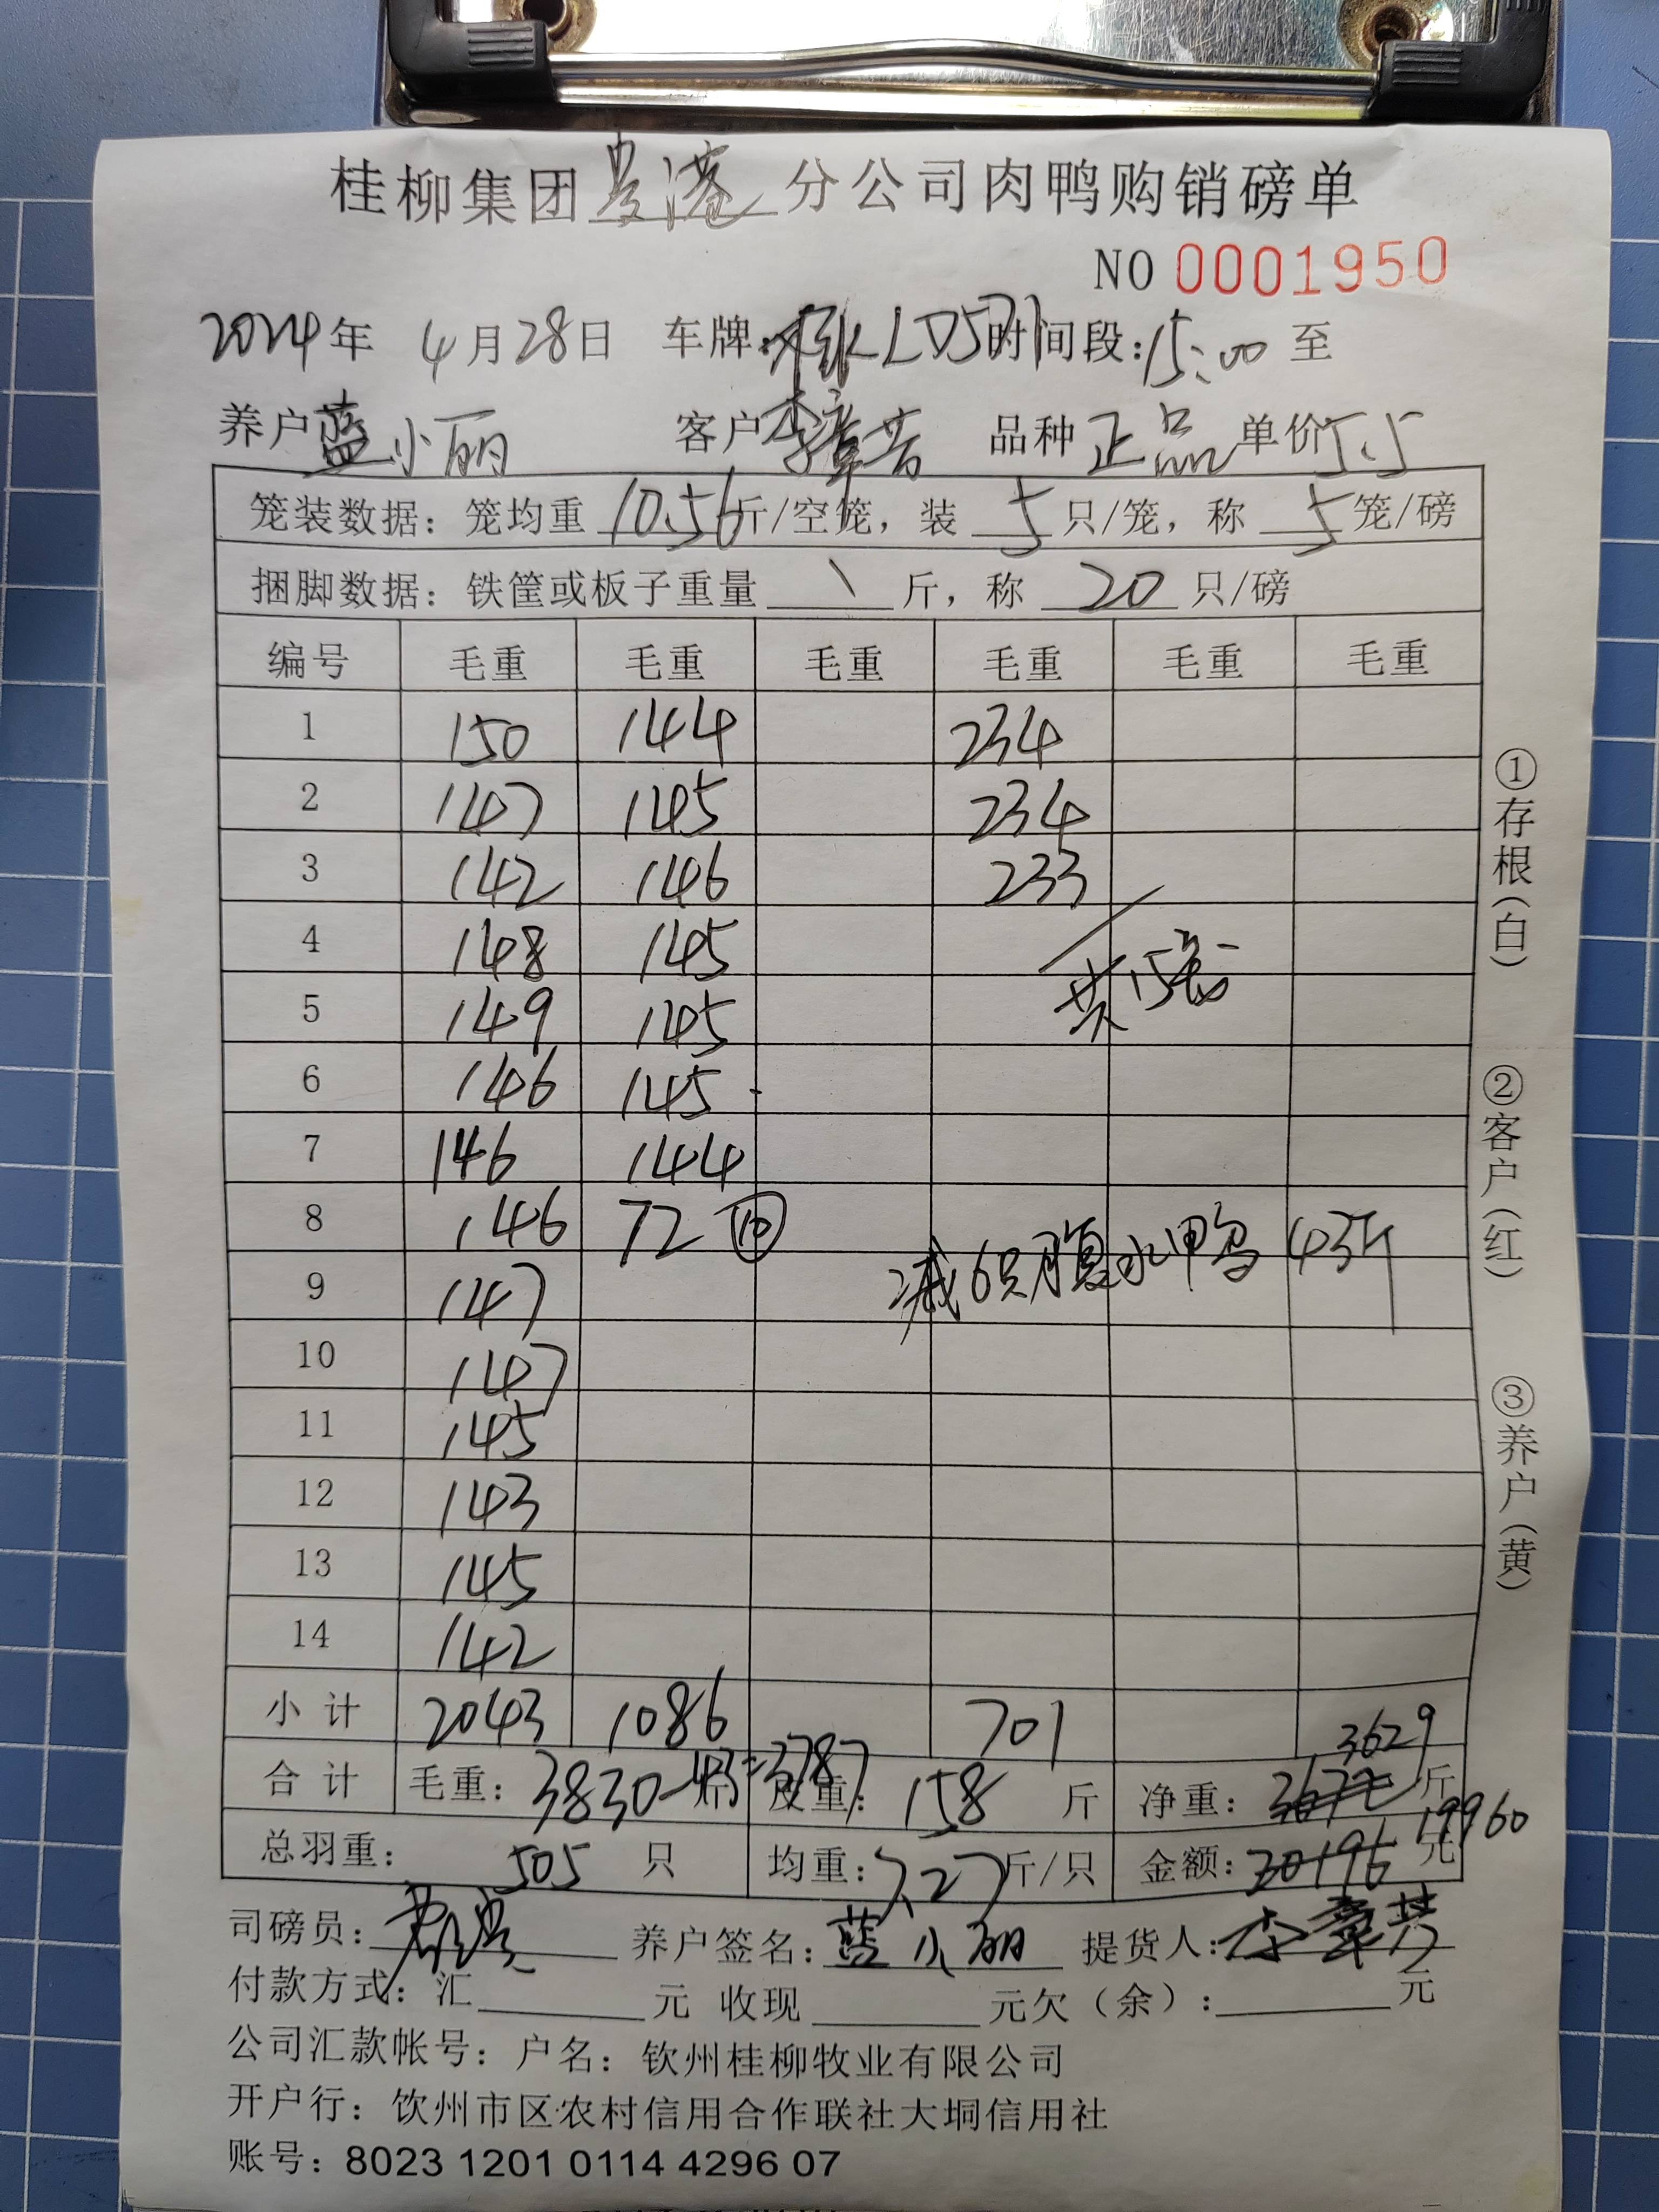 桂柳集团贵港分公司肉鸭购销磅单
NO 0001950
2024年 4月28日 车牌: LD571 时间段:15:00 至
养户 蓝小丽 客户 李章芳 品种 正品 单价 5.5
笼装数据：笼均重 10.56 斤/空笼，装 5 只/笼，称 5 笼/磅
捆脚数据：铁筐或板子重量 \ 斤，称 20 只/磅
编号 毛重 毛重 毛重 毛重 毛重 毛重
1 150 144 234
2 147 145 234
3 142 146 233
4 148 145
共15笼
5 149 145
6 146 145
7 146 144
8 146 72 ⑩
减6只腹水鸭 43斤
9 147
10 147
11 145
12 143
13 145
14 142
小计 2043 1086 701
合计 毛重：3830-43=3787斤 皮重：158 斤 净重：3672 3629 斤
总羽重：505 只 均重：7.27斤/只 金额：20196 19960 元
司磅员： 养户签名：蓝小丽 提货人：李章芳
付款方式：汇 元 收现 元欠（余）： 元
公司汇款帐号：户名：钦州桂柳牧业有限公司
开户行：饮州市区农村信用合作联社大垌信用社
账号：8023 1201 0114 4296 07
①存根（白）
②客户（红）
③养户（黄）